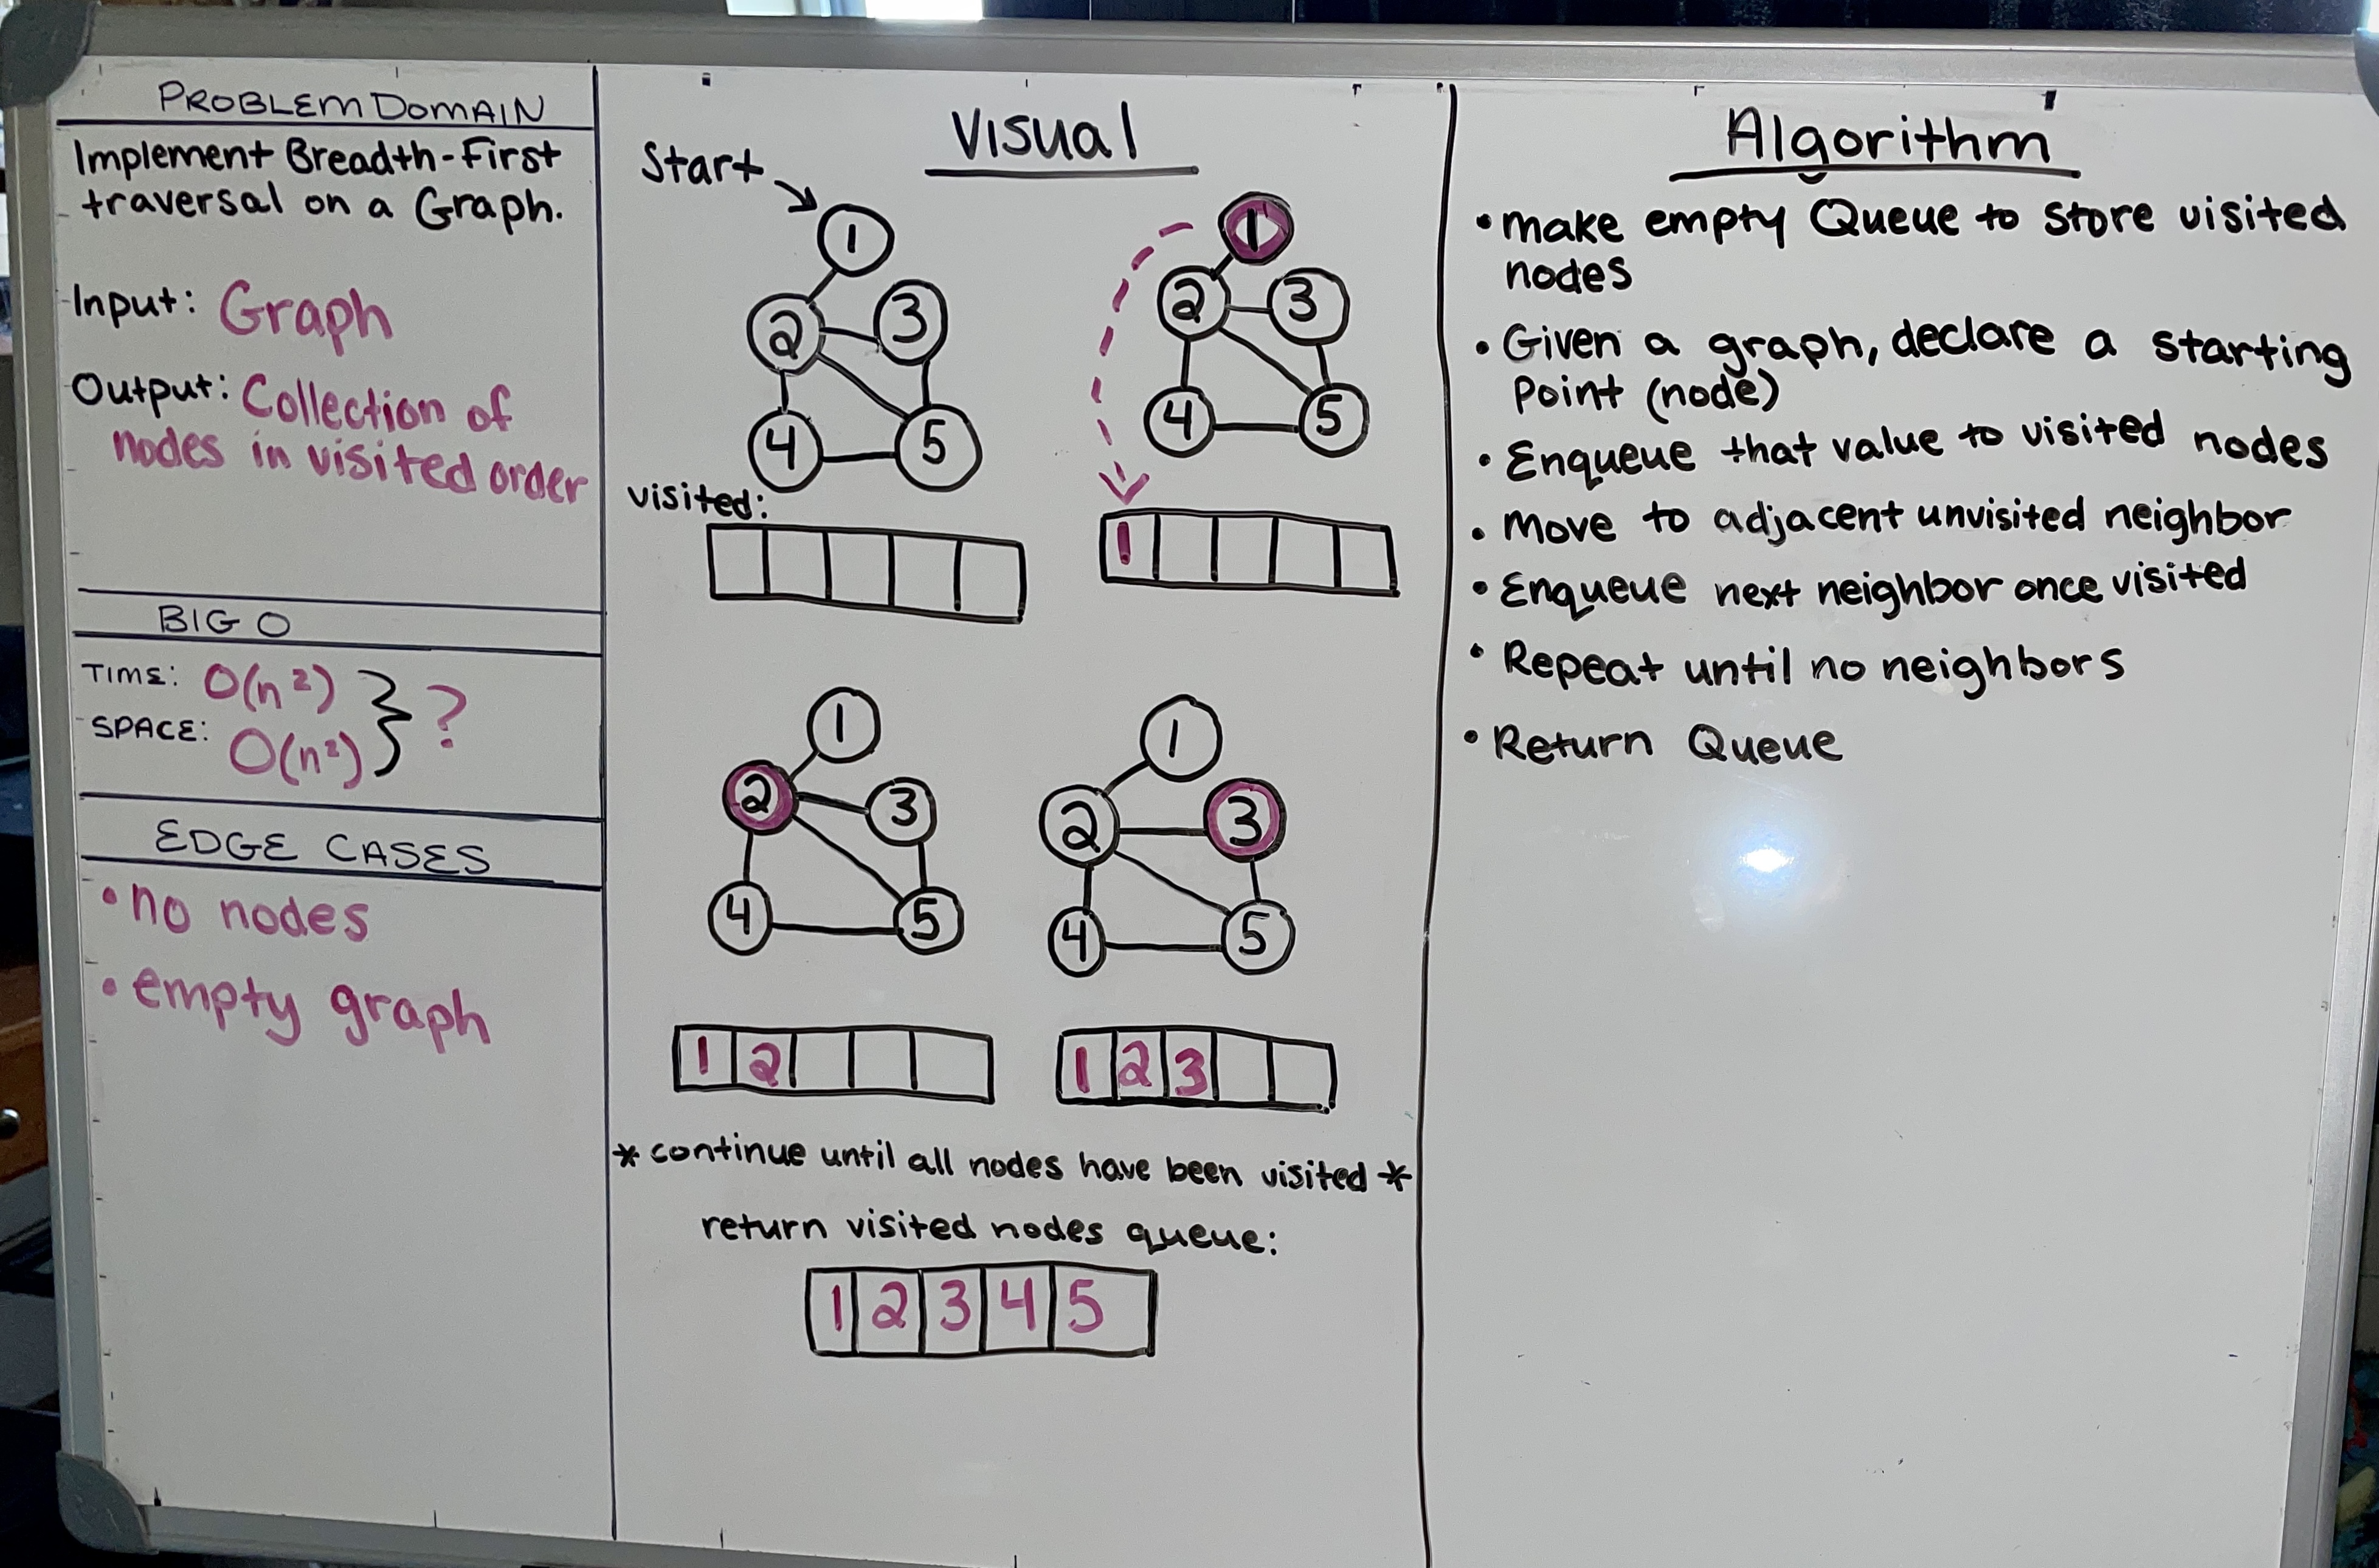 PROBLEM DOMAIN
Implement Breadth-First
traversal on a Graph.
Input: Graph
Output: Collection of
nodes in visited order
BIG O
TIME: O(n²) } ?
SPACE: O(n²)
EDGE CASES
• no nodes
• empty graph
Visual
Start
1
2 3
4 5
visited:
1
2 3
4 5
1
1
2 3
4 5
1 2
1
2 3
4 5
1 2 3
* continue until all nodes have been visited *
return visited nodes queue:
1 2 3 4 5
Algorithm
• make empty Queue to store visited
nodes
• Given a graph, declare a starting
Point (node)
• Enqueue that value to visited nodes
• Move to adjacent unvisited neighbor
• Enqueue next neighbor once visited
• Repeat until no neighbors
• Return Queue